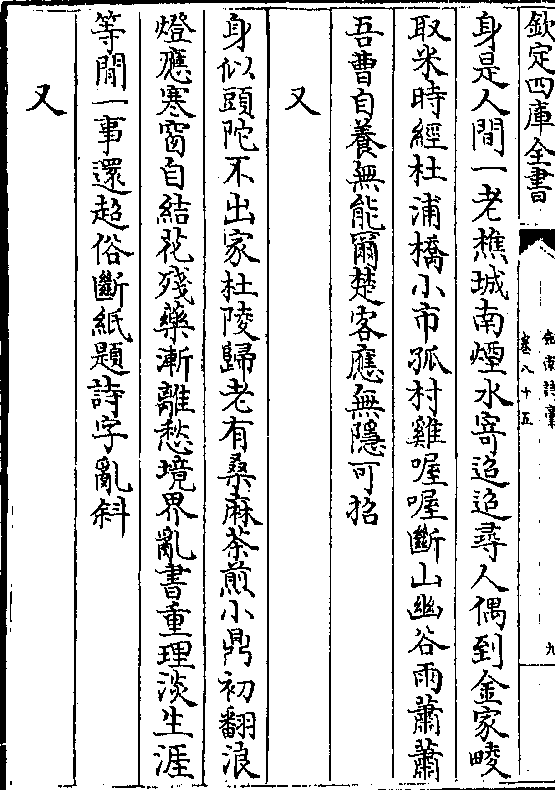 欽定四庫全書
劍南詩稾
卷八十五
九
身是人間一老樵城南煙水寄迢迢尋人偶到金家畈
取米時經杜浦橋小市孤村雞喔喔斷山幽谷雨蕭蕭
吾曹自養無能爾楚客應無隱可招
又
身似頭陀不出家杜陵歸老有桑麻茶煎小鼎初翻浪
燈應寒窗自結花殘藥漸離愁境界亂書重理淡生涯
等閒一事還超俗斷紙題詩字亂斜
又